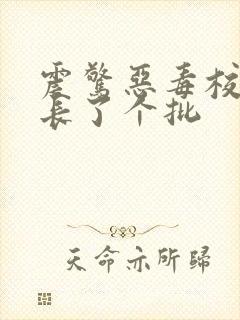 震驚惡毒校
長了个批
天命亦所歸